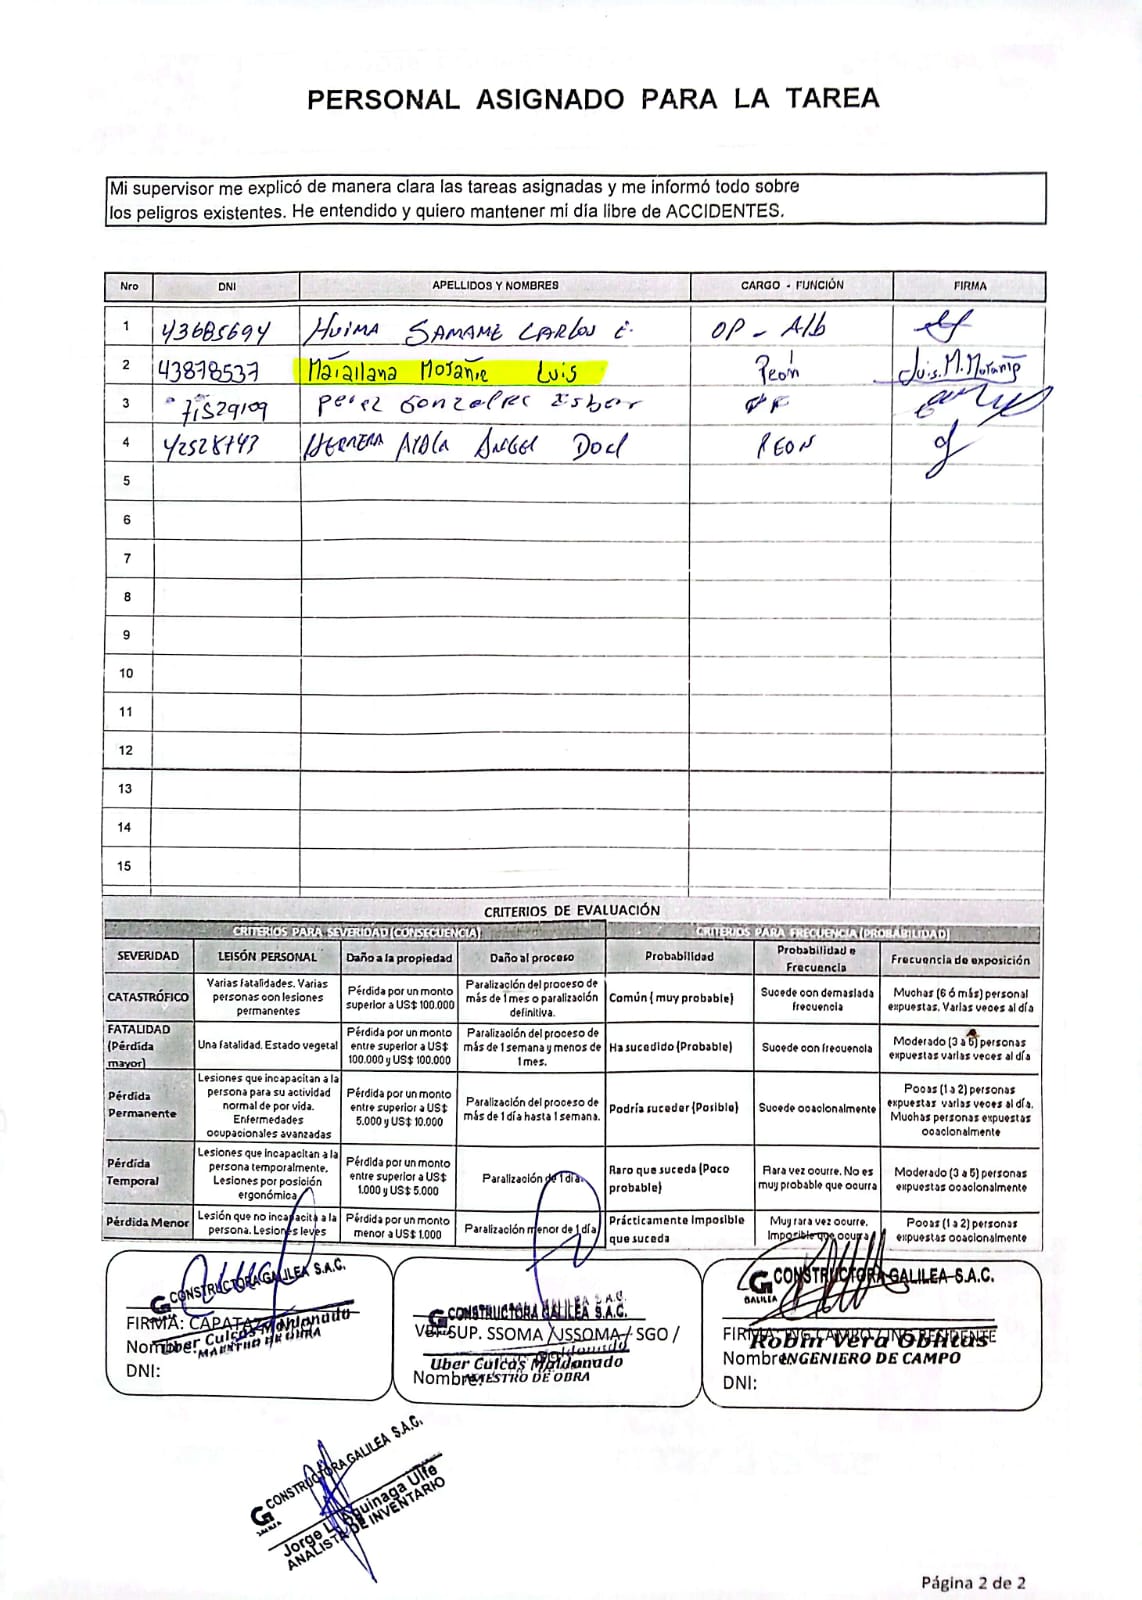 PERSONAL ASIGNADO PARA LA TAREA
Mi supervisor me explicó de manera clara las tareas asignadas y me informó todo sobre
los peligros existentes. He entendido y quiero mantener mi día libre de ACCIDENTES.
Nro DNI APELLIDOS Y NOMBRES CARGO - FUNCIÓN FIRMA
1 43685694 HUIMA SAMAME CARLOS E. OP - Alb
2 43878537 Luis Peón Luis.M.
3 71529109 Perez Gonzales
4 HERRERA AYALA ANGEL PEON
5
6
7
8
9
10
11
12
13
14
15
CRITERIOS DE EVALUACIÓN
CRITERIOS PARA SEVERIDAD (CONSECUENCIA) CRITERIOS PARA FRECUENCIA (PROBABILIDAD)
SEVERIDAD LEISÓN PERSONAL Daño a la propiedad Daño al proceso Probabilidad Probabilidad e Frecuencia Frecuencia de exposición
CATASTRÓFICO Varias fatalidades. Varias personas con lesiones permanentes Pérdida por un monto superior a US$ 100.000 Paralización del proceso de más de 1 mes o paralización definitiva. Común ( muy probable) Sucede con demasiada frecuencia Muchas (6 ó más) personal expuestas. Varias veces al día
FATALIDAD (Pérdida mayor) Una fatalidad. Estado vegetal Pérdida por un monto entre superior a US$ 100.000 y US$ 100.000 Paralización del proceso de más de 1 semana y menos de 1 mes. Ha sucedido (Probable) Sucede con frecuencia Moderado (3 a 5) personas expuestas varias veces al día
Pérdida Permanente Lesiones que incapacitan a la persona para su actividad normal de por vida. Enfermedades ocupacionales avanzadas Pérdida por un monto entre superior a US$ 5.000 y US$ 10.000 Paralización del proceso de más de 1 día hasta 1 semana. Podría suceder (Posible) Sucede ocacionalmente Pocas (1 a 2) personas expuestas varias veces al día. Muchas personas expuestas ocacionalmente
Pérdida Temporal Lesiones que incapacitan a la persona temporalmente. Lesiones por posición ergonómica Pérdida por un monto entre superior a US$ 1.000 y US$ 5.000 Paralización de 1 día. Raro que suceda (Poco probable) Rara vez ocurre. No es muy probable que ocurra Moderado (3 a 5) personas expuestas ocacionalmente
Pérdida Menor Lesión que no incapacita a la persona. Lesiones leves Pérdida por un monto menor a US$ 1.000 Paralización menor de 1 día Prácticamente Imposible que suceda Muy rara vez ocurre. Imposible que ocurra Pocas (1 a 2) personas expuestas ocacionalmente
CONSTRUCTORA GALILEA S.A.C.
FIRMA: CAPATAZ
Nombre: Uber Culcas Maldonado
MAESTRO DE OBRA
DNI:
CONSTRUCTORA GALILEA S.A.C.
SUP. SSOMA / JSSOMA / SGO /
Uber Culcas Maldonado
Nombre: MAESTRO DE OBRA
CONSTRUCTORA GALILEA S.A.C.
GALILEA
FIRMA: ING CAMPO / ING RESIDENTE
Robin Vera Obnitas
Nombre INGENIERO DE CAMPO
DNI:
CONSTRUCTORA GALILEA S.A.C.
GALILEA
Jorge L. Aguinaga Ulfe
ANALISTA DE INVENTARIO
Página 2 de 2